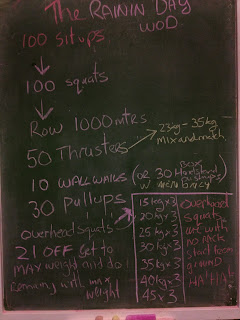 The RAININ DAY
WOD
100 situps
100 squats
Row 1000mtrs
50 Thrusters
23kg - 35kg
mix and match
10 WALL WALKS (OR 30 Handstand pushups
30 Pullups
overhead squats
21 OFF Get to
MAX weight and do
Remaining with max
weight
15kg x 3
20kg x 3
25kg x 3
30kg x 3
35kg x 3
40kg x 2
45 x 3
overhead
squats
are with
no RACK
start from
ground
HA HA HA